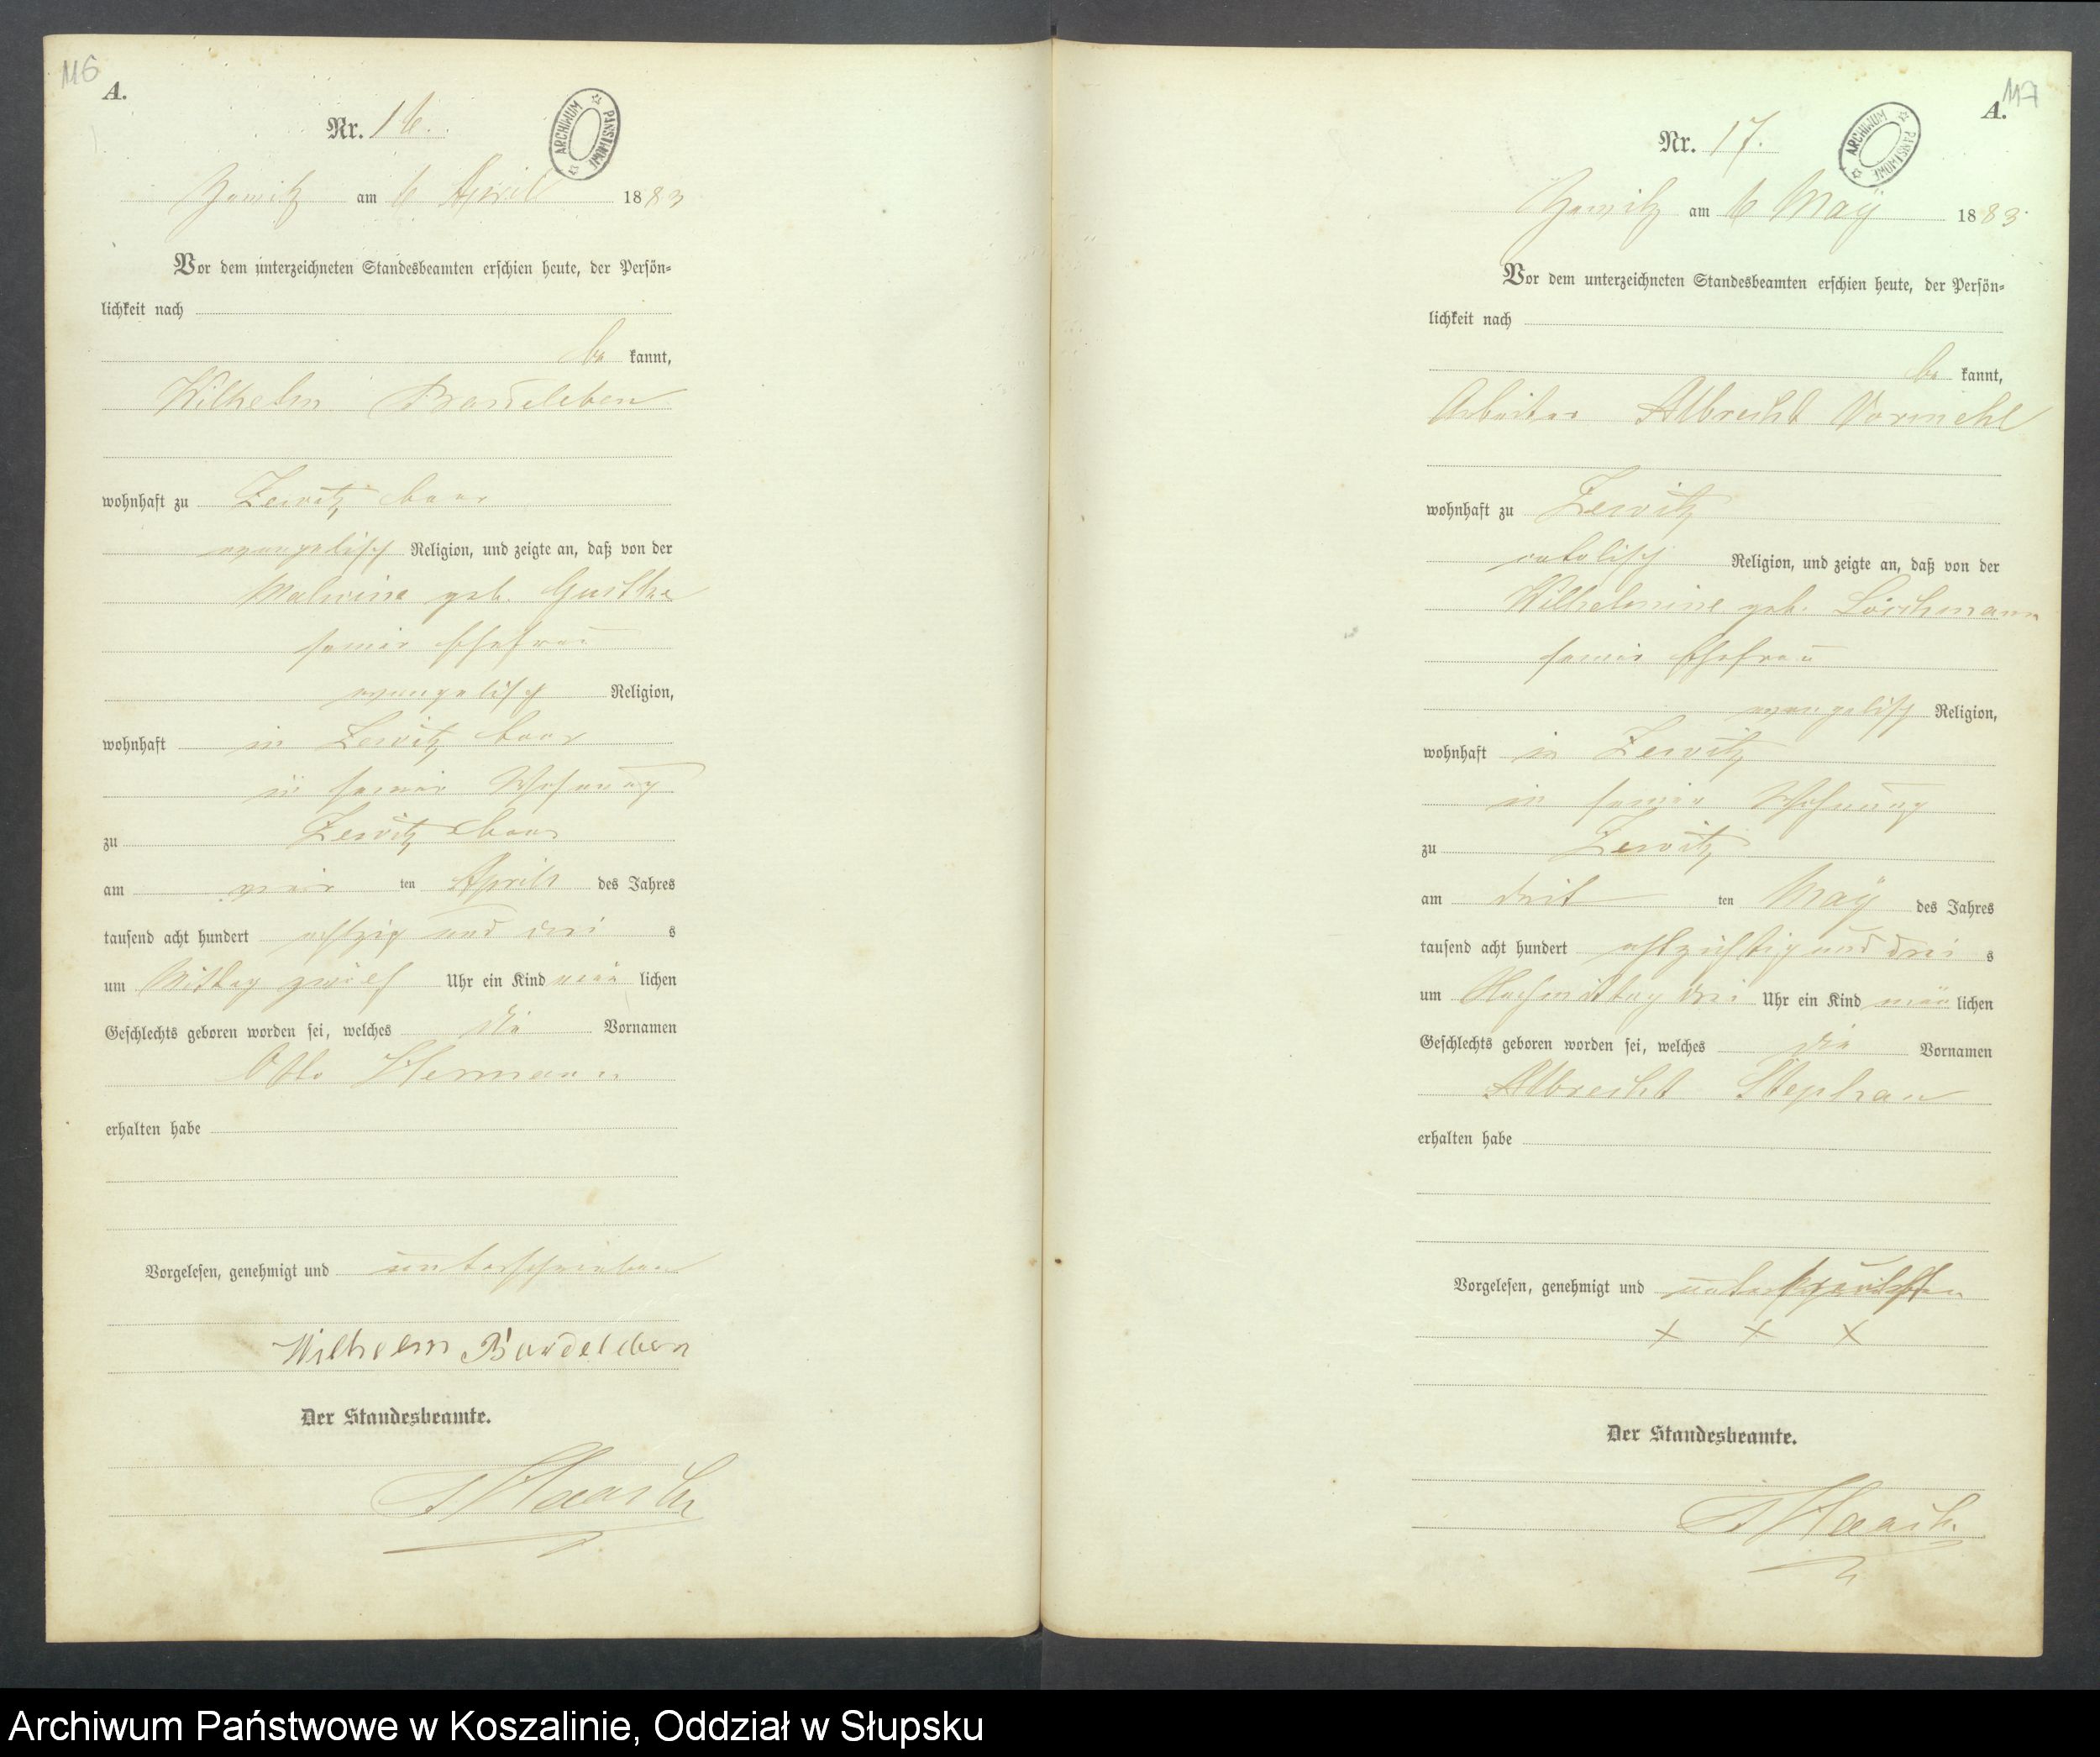 116
A.
Nr. 16.
ARCHIWUM PAŃSTWOWE
am 6 April 1883
Vor dem unterzeichneten Standesbeamten erschien heute, der Persön=
lichkeit nach
be kannt,
Wilhelm Bardeleben
wohnhaft zu Zewitz
evangelisch Religion, und zeigte an, daß von der
Malwine geb.
seiner Ehefrau
evangelisch Religion,
wohnhaft in Zewitz
in seiner Wohnung
zu Zewitz
am ten April des Jahres
tausend acht hundert achtzig und drei s
um Mittag zwölf Uhr ein Kind män lichen
Geschlechts geboren worden sei, welches die Vornamen
Otto Hermann
erhalten habe
Vorgelesen, genehmigt und unterschrieben
Wilhelm Bardeleben
Der Standesbeamte.
117
A.
Nr. 17.
ARCHIWUM PAŃSTWOWE
am 6 May 1883
Vor dem unterzeichneten Standesbeamten erschien heute, der Persön=
lichkeit nach
be kannt,
Arbeiter Albrecht Vormehl
wohnhaft zu Zewitz
catolisch Religion, und zeigte an, daß von der
Wilhelmine geb.
seiner Ehefrau
evangelisch Religion,
wohnhaft in Zewitz
in seiner Wohnung
zu Zewitz
am drit ten May des Jahres
tausend acht hundert und drei s
um Nachmittag drei Uhr ein Kind män lichen
Geschlechts geboren worden sei, welches die Vornamen
Albrecht Stephan
erhalten habe
Vorgelesen, genehmigt und
x x x
Der Standesbeamte.
Archiwum Państwowe w Koszalinie, Oddział w Słupsku